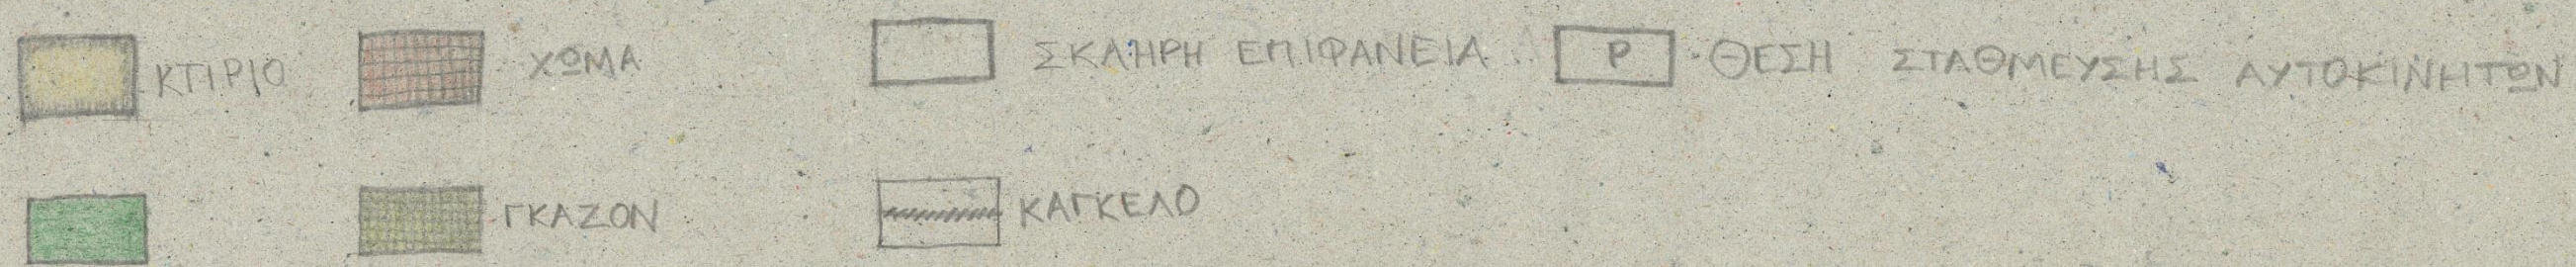 ΚΤΙΡΙΟ ΧΩΜΑ ΣΚΛΗΡΗ ΕΠΙΦΑΝΕΙΑ P ΘΕΣΗ ΣΤΑΘΜΕΥΣΗΣ ΑΥΤΟΚΙΝΗΤΩΝ
ΓΚΑΖΟΝ ΚΑΓΚΕΛΟ